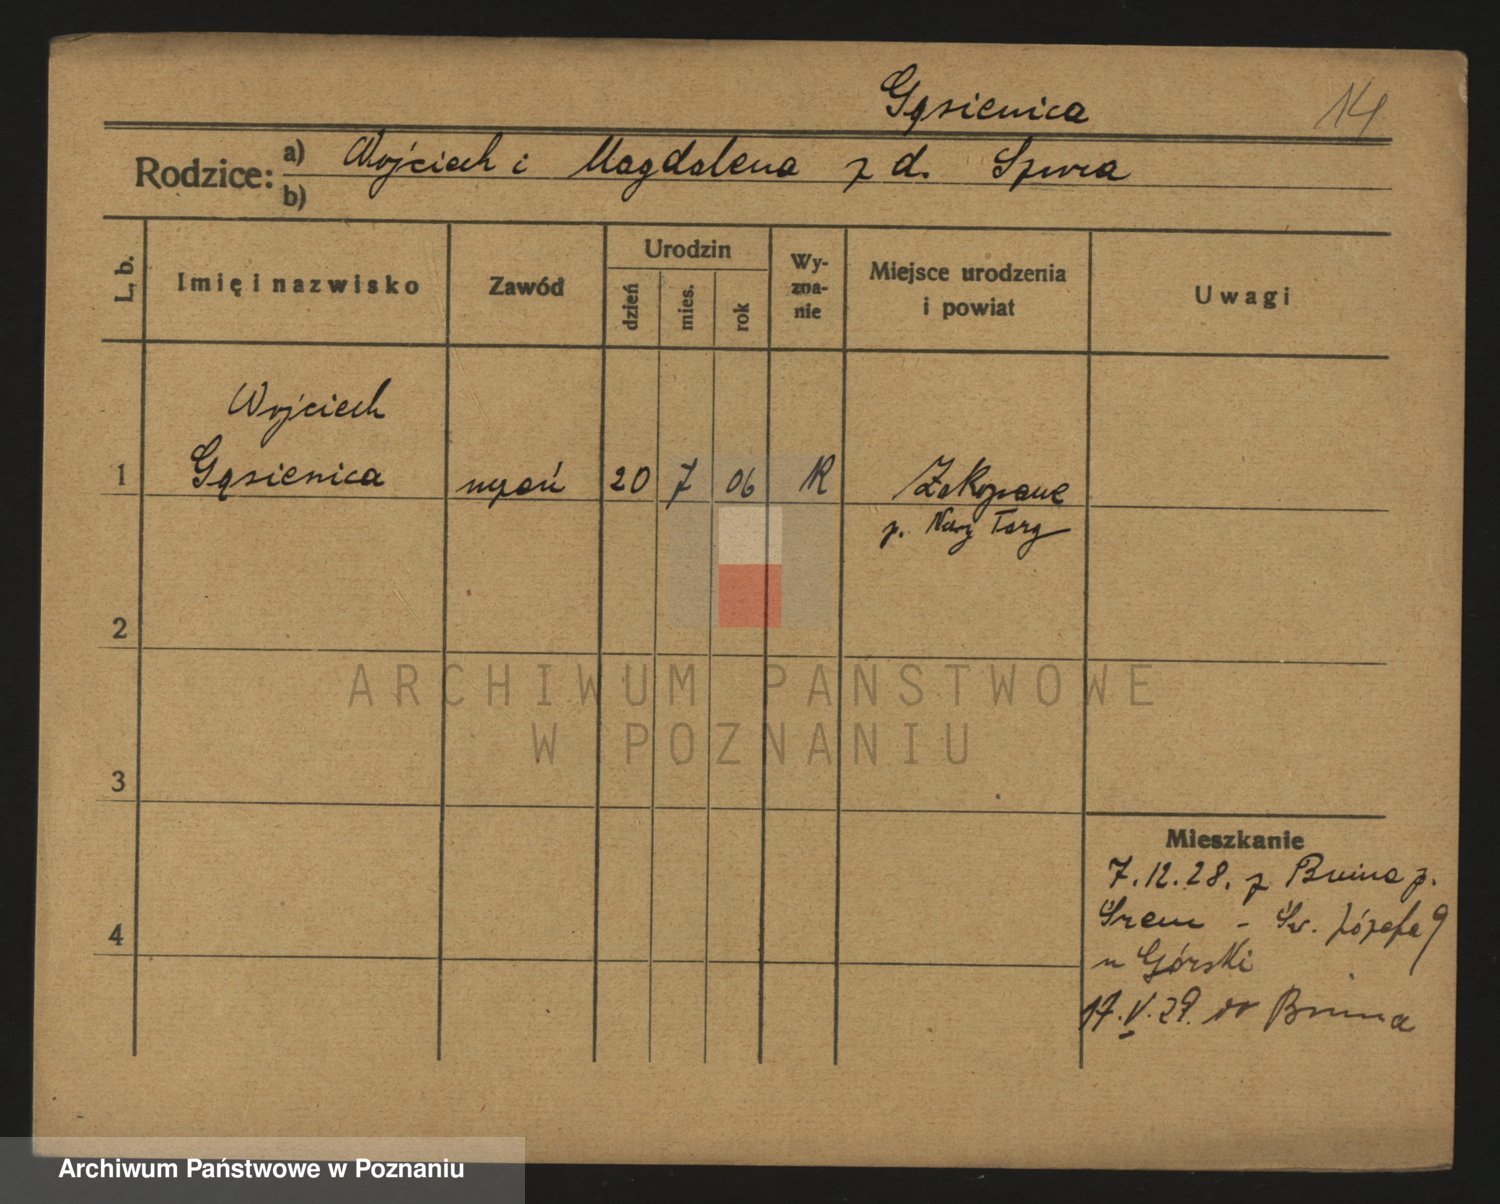 Gąsienica 14
Rodzice: a) Wojciech i Magdalena z d.
b)
L. b. Imię i nazwisko Zawód Urodzin dzień mies. rok Wy-zna-nie Miejsce urodzenia i powiat Uwagi
Wojciech
1 Gąsienica uczeń 20 7 06 R Zakopane
p. Nowy Targ
2
ARCHIWUM PAŃSTWOWE
W POZNANIU
3
Mieszkanie
7.12.28. z Bnina p.
4 Śrem - Św. Józefa 9
u Górski
17.V.29. do Bnina
Archiwum Państwowe w Poznaniu